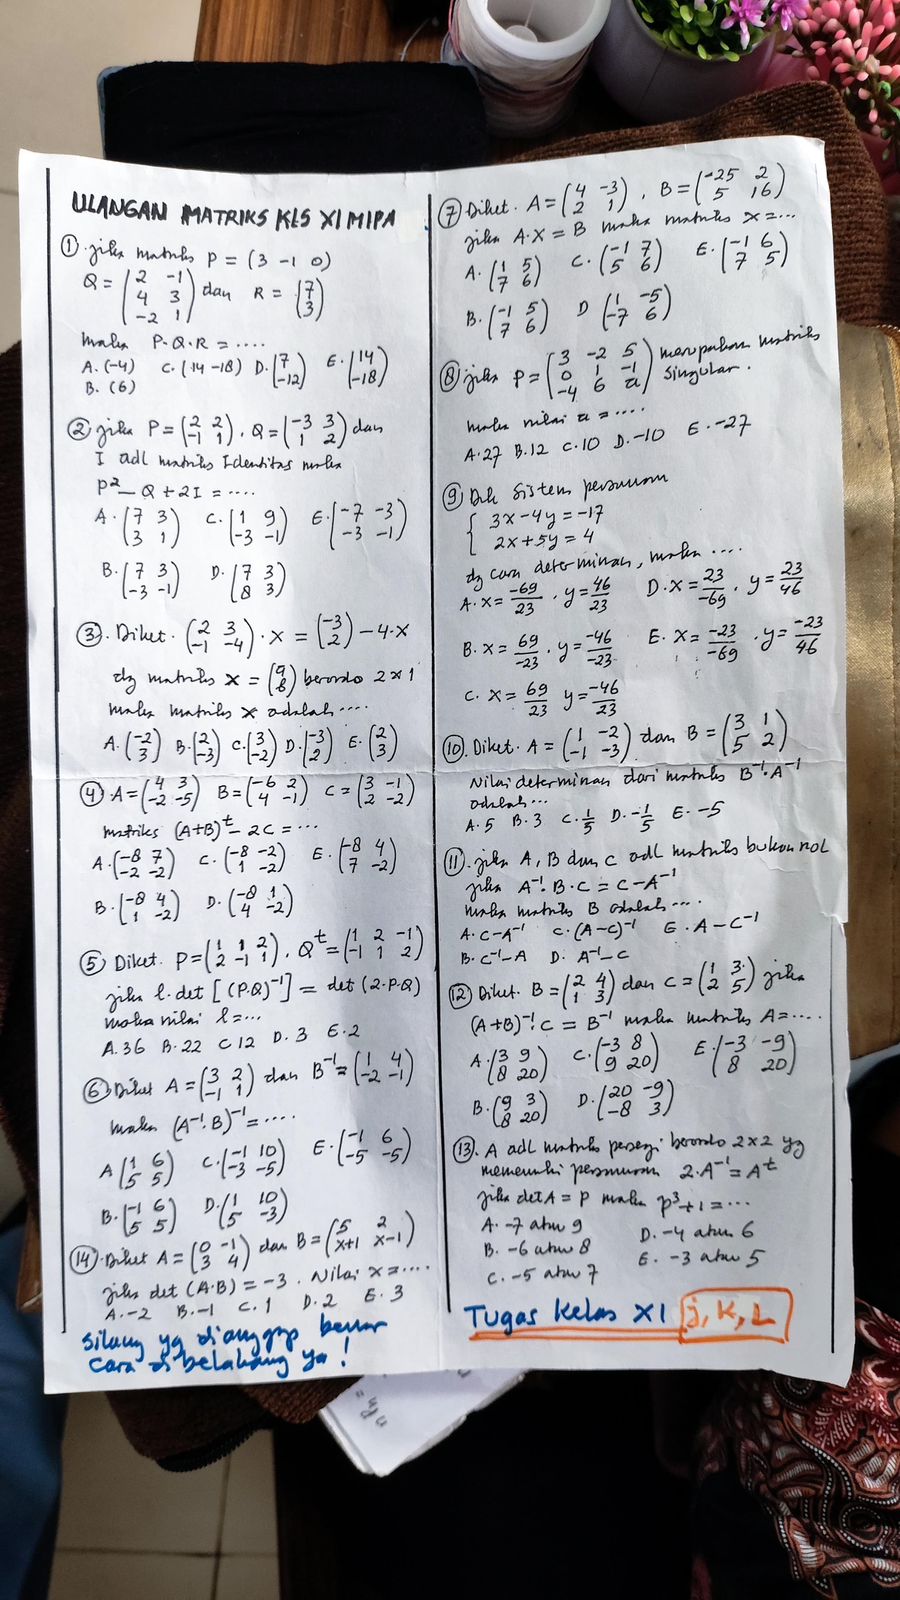 ULANGAN MATRIKS KLS XI MIPA
① jika matriks P = (3 -1 0)
Q = (2 -1
4 3
-2 1) dan R = (7
3)
maka P·Q·R = ....
A. (-4) C. (14 -18) D. (7
-12) E. (14
-18)
B. (6)
② jika P = (2 2
-1 1), Q = (-3 3
1 2) dan
I adl matriks Identitas maka
P² - Q + 2I = ....
A. (7 3
3 1) C. (1 9
-3 -1) E. (-7 -3
-3 -1)
B. (7 3
-3 -1) D. (7 3
8 3)
③. Diket. (2 3
-1 -4) · x = (-3
2) - 4·x
dg matriks x = (a
b) berordo 2x1
maka matriks x adalah ....
A. (-2
3) B. (2
-3) C. (3
-2) D. (-3
2) E. (2
3)
④ A = (4 3
-2 -5) B = (-6 2
4 -1) C = (3 -1
2 -2)
matriks (A+B)ᵗ - 2C = ...
A. (-8 7
-2 -2) C. (-8 -2
1 -2) E. (-8 4
7 -2)
B. (-8 4
1 -2) D. (-8 1
4 -2)
⑤ Diket. P = (1 1 2
2 -1 1), Qᵗ = (1 2 -1
-1 1 2)
jika l. det [(P·Q)⁻¹] = det (2·P·Q)
maka nilai l = ...
A. 36 B. 22 C 12 D. 3 E. 2
⑥ Diket A = (3 2
-1 1) dan B⁻¹ = (1 4
-2 -1)
maka (A⁻¹·B)⁻¹ = ....
A (1 6
5 5) C. (-1 10
-3 -5) E. (-1 6
-5 -5)
B. (-1 6
5 5) D. (1 10
5 -3)
⑭. Diket A = (0 -1
3 4) dan B = (5 2
x+1 x-1)
jika det (A·B) = -3. Nilai x = ....
A. -2 B. -1 C. 1 D. 2 E. 3
silang yg dianggap benar
cara di belakang ya !
⑦ Diket. A = (4 -3
2 1), B = (-25 2
5 16)
jika A·X = B maka matriks x = ...
A. (1 5
7 6) C. (-1 7
5 6) E. (-1 6
7 5)
B. (-1 5
7 6) D (1 -5
-7 6)
⑧ jika P = (3 -2 5
0 1 -1
-4 6 a) merupakan matriks
singular.
maka nilai a = ....
A. 27 B. 12 C. 10 D. -10 E. -27
⑨ Dik sistem persamaan
{ 3x - 4y = -17
2x + 5y = 4
dg cara determinan, maka ....
A. x = -69/23, y = 46/23 D. x = 23/-69, y = 23/46
B. x = 69/-23, y = -46/-23 E. x = -23/-69, y = -23/46
C. x = 69/23 y = -46/23
⑩. Diket. A = (1 -2
-1 -3) dan B = (3 1
5 2)
Nilai determinan dari matriks B⁻¹·A⁻¹
adalah...
A. 5 B. 3 C. 1/5 D. -1/5 E. -5
⑪. jika A, B dan C adl matriks bukan nol
jika A⁻¹·B·C = C - A⁻¹
maka matriks B adalah ....
A. C - A⁻¹ C. (A - C)⁻¹ E. A - C⁻¹
B. C⁻¹ - A D. A⁻¹ - C
⑫ Diket. B = (2 4
1 3) dan C = (1 3
2 5) jika
(A+B)⁻¹·C = B⁻¹ maka matriks A = ....
A. (3 9
8 20) C. (-3 8
9 20) E. (-3 -9
8 20)
B. (9 3
8 20) D. (20 -9
-8 3)
⑬. A adl matriks persegi berordo 2x2 yg
memenuhi persamaan 2·A⁻¹ = Aᵗ
jika det A = P maka p³+1 = ...
A. -7 atau 9 D. -4 atau 6
B. -6 atau 8 E. -3 atau 5
C. -5 atau 7
Tugas Kelas XI j, K, L